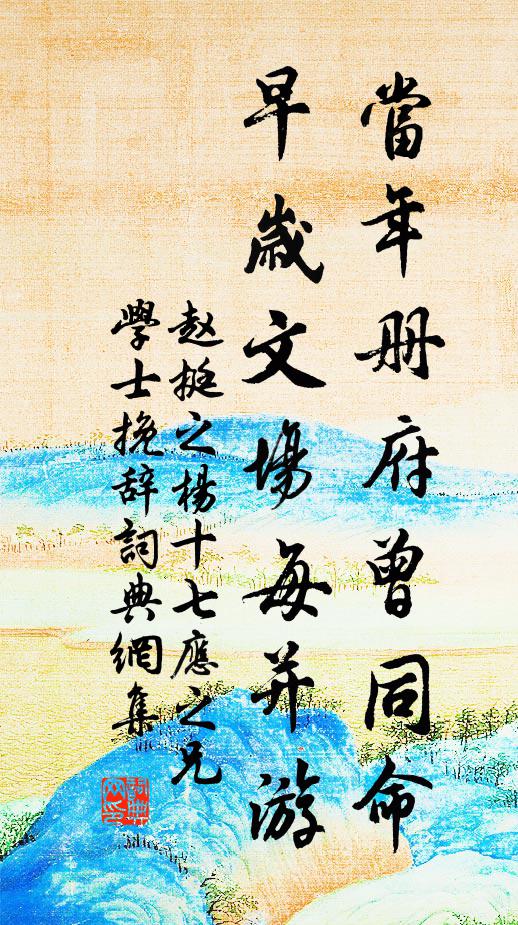 當年册府曾同命
早歲文場每并游
赵挺之楊十七應之兄
學士挽辞詞典網集